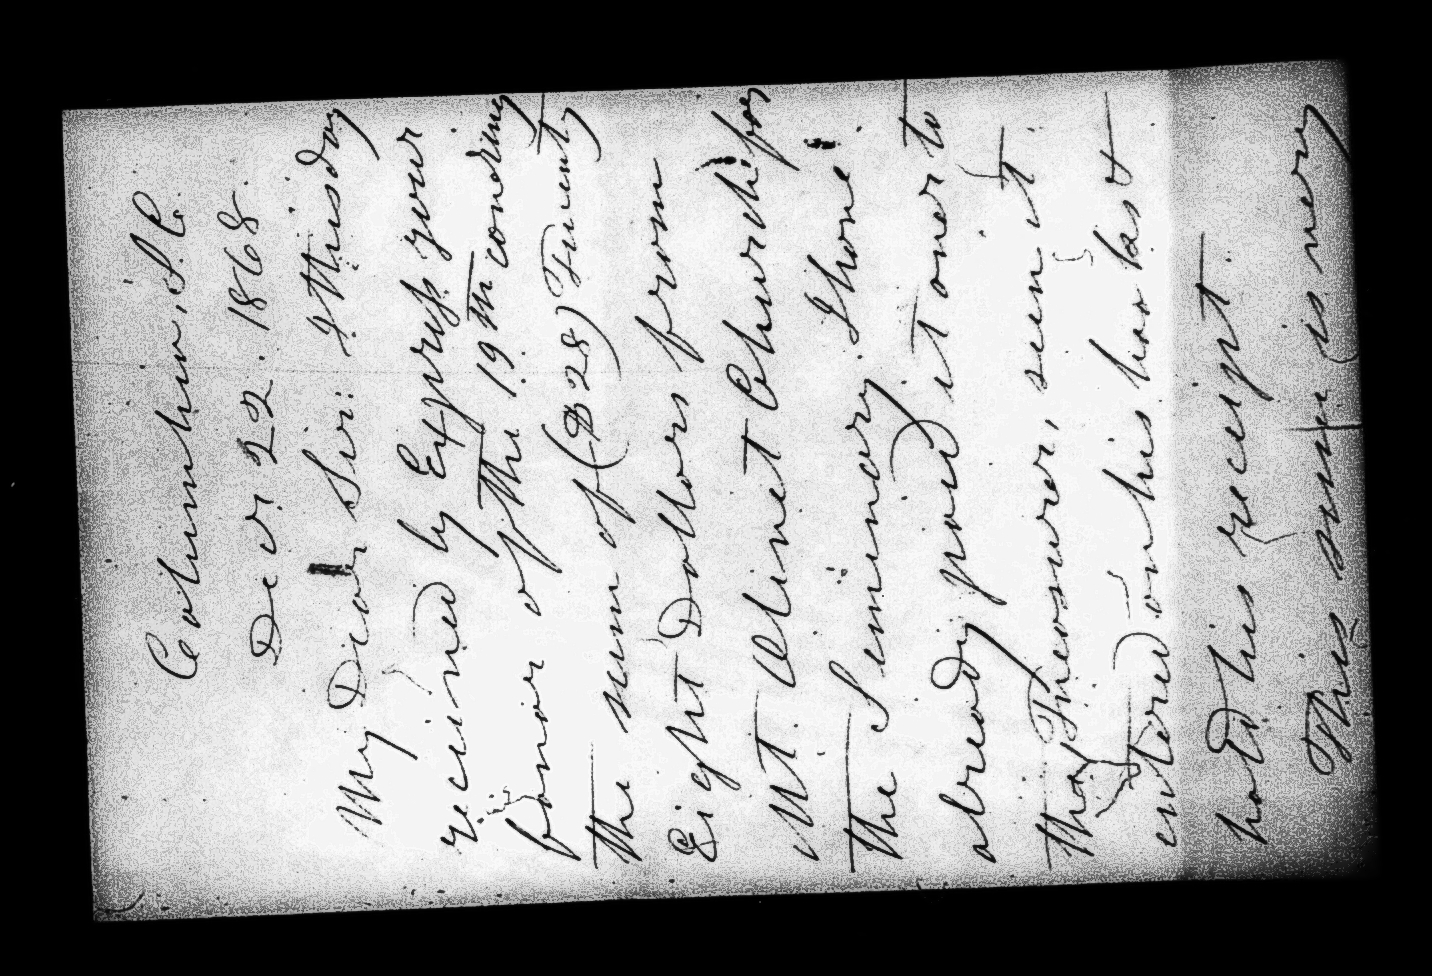 Columbia, S. C.
Decr 22. 1868.
My Dear Sir: I thusday
recieved by Express your
favor of the 19th conding
the sum of ($28) Twenty
Eight Dollars from
Mt Olivet Church, for
the Seminary. I have
already paid it over to
the Treasurer, seen it
entered on his book &
hold his receipt.
This sum is very